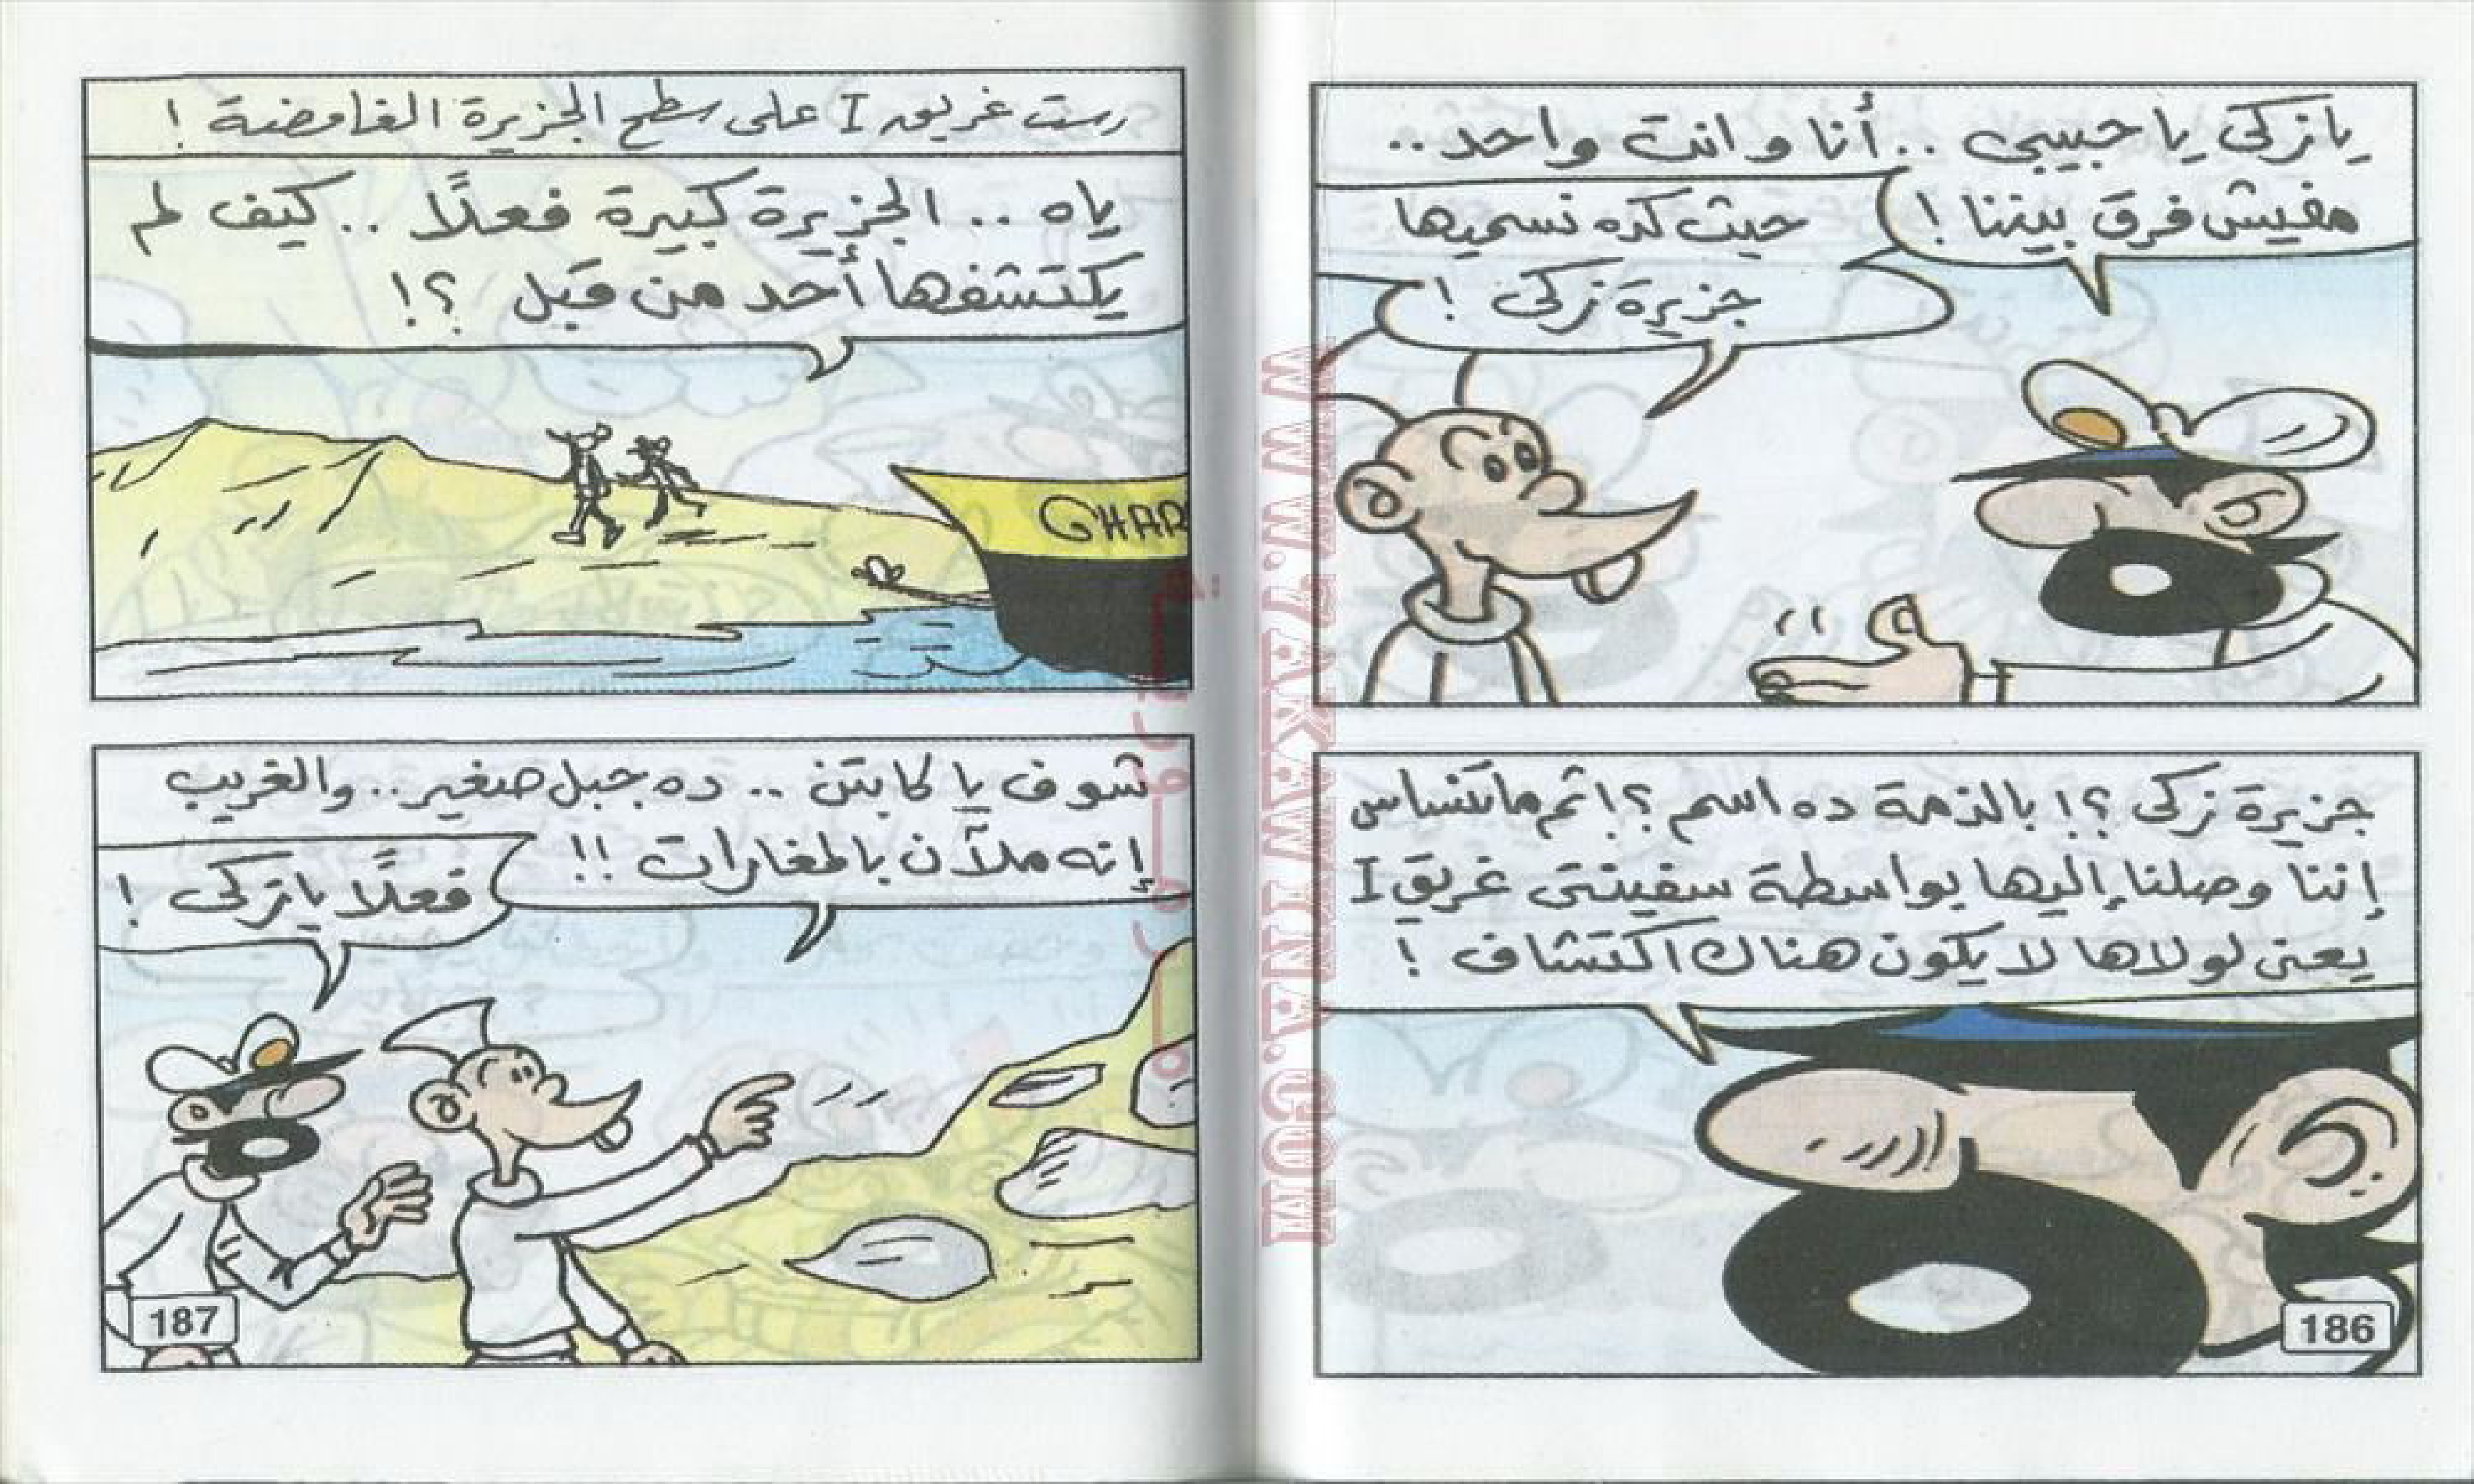 يا زكى يا حبيبى .. أنا وانت واحد ..
مفيش فرق بيننا !
حيث كده نسميها
جزيرة زكى !
جزيرة زكى ؟! بالذمة ده اسم ؟! ثم ماتنساش
إننا وصلنا إليها بواسطة سفينتى غريق I
يعنى لولاها لا يكون هناك اكتشاف !
186
رست غريق I على سطح الجزيرة الغامضة !
ياه .. الجزيرة كبيرة فعلاً .. كيف لم
يكتشفها أحد من قبل ؟!
GHAR
شوف يا كابتن .. ده جبل صغير .. والغريب
إنه ملآن بالمغارات !!
فعلاً يا زكى !
187